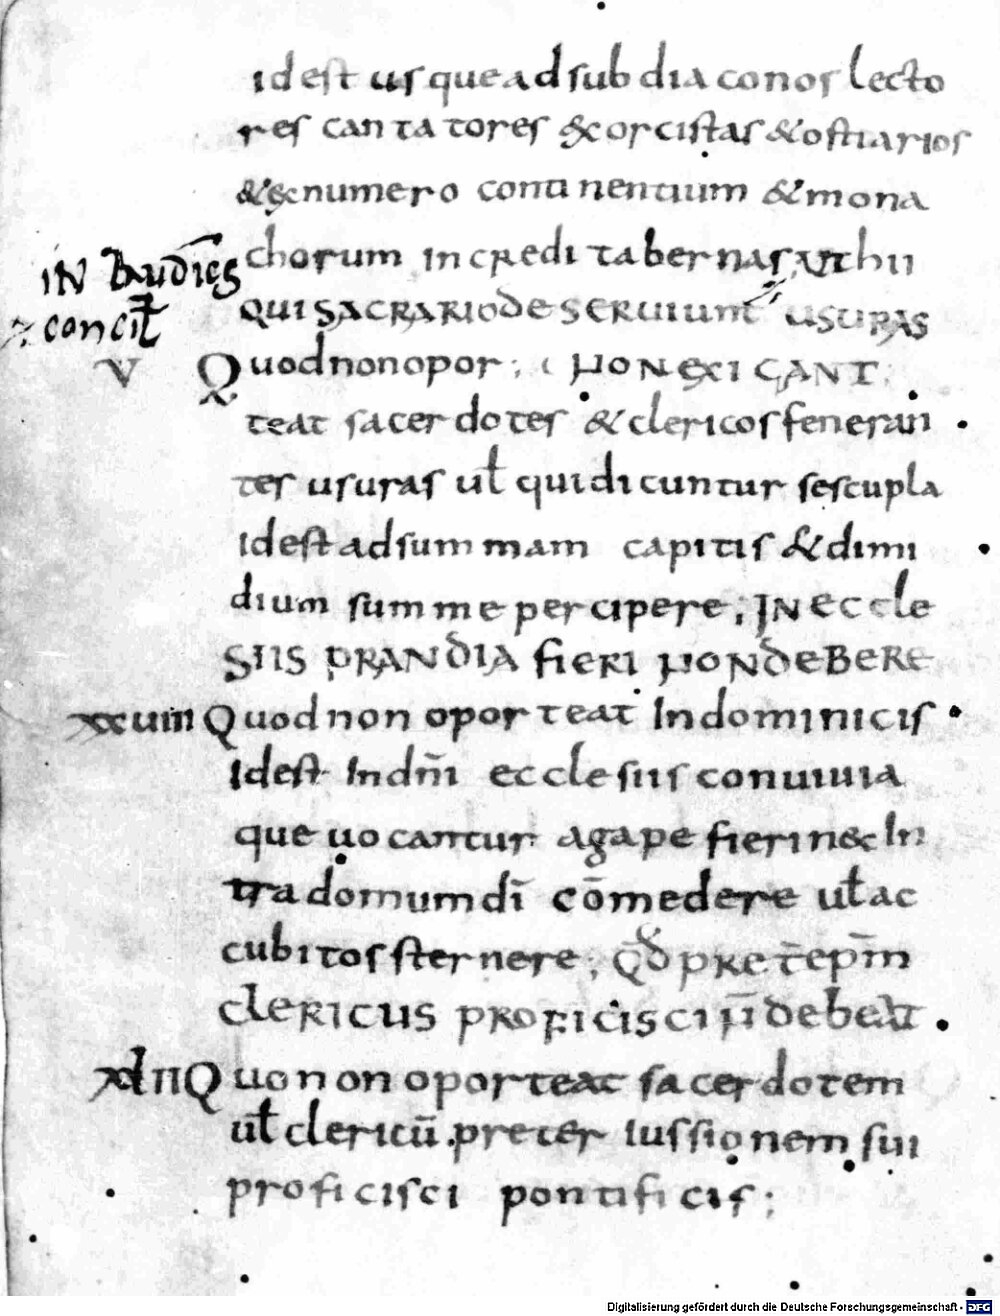 idest usque ad subdiaconos lecto
res cantatores &xorcistas & ostiarios
& ex numero continentium & mona
chorum ingredi tabernas, ut hii
qui sacrario deseruiunt usuras
IN
concil̄
V Quod non opor; non exigant;
teat sacerdotes & clericos feneran
tes usuras ul̄ qui dicuntur sescupla
Idest ad summam capitis & dimi
dium summe percipere; IN eccle
siis prandia fieri non debere
xxuiii Quod non oporteat In dominicis
Idest In dn̄i ecclesiis conuiuia
que uocantur agape fieri nec In
tra domum dī cōmedere ul̄ ac
cubitos sternere; Qđ preter ep̄m
clericus proficisci n̄ debeat
xlii Quo non oporteat sacerdotem
ul̄ clericū preter iussionem sui
proficisci pontificis;
Digitalisierung gefördert durch die Deutsche Forschungsgemeinschaft - DFG